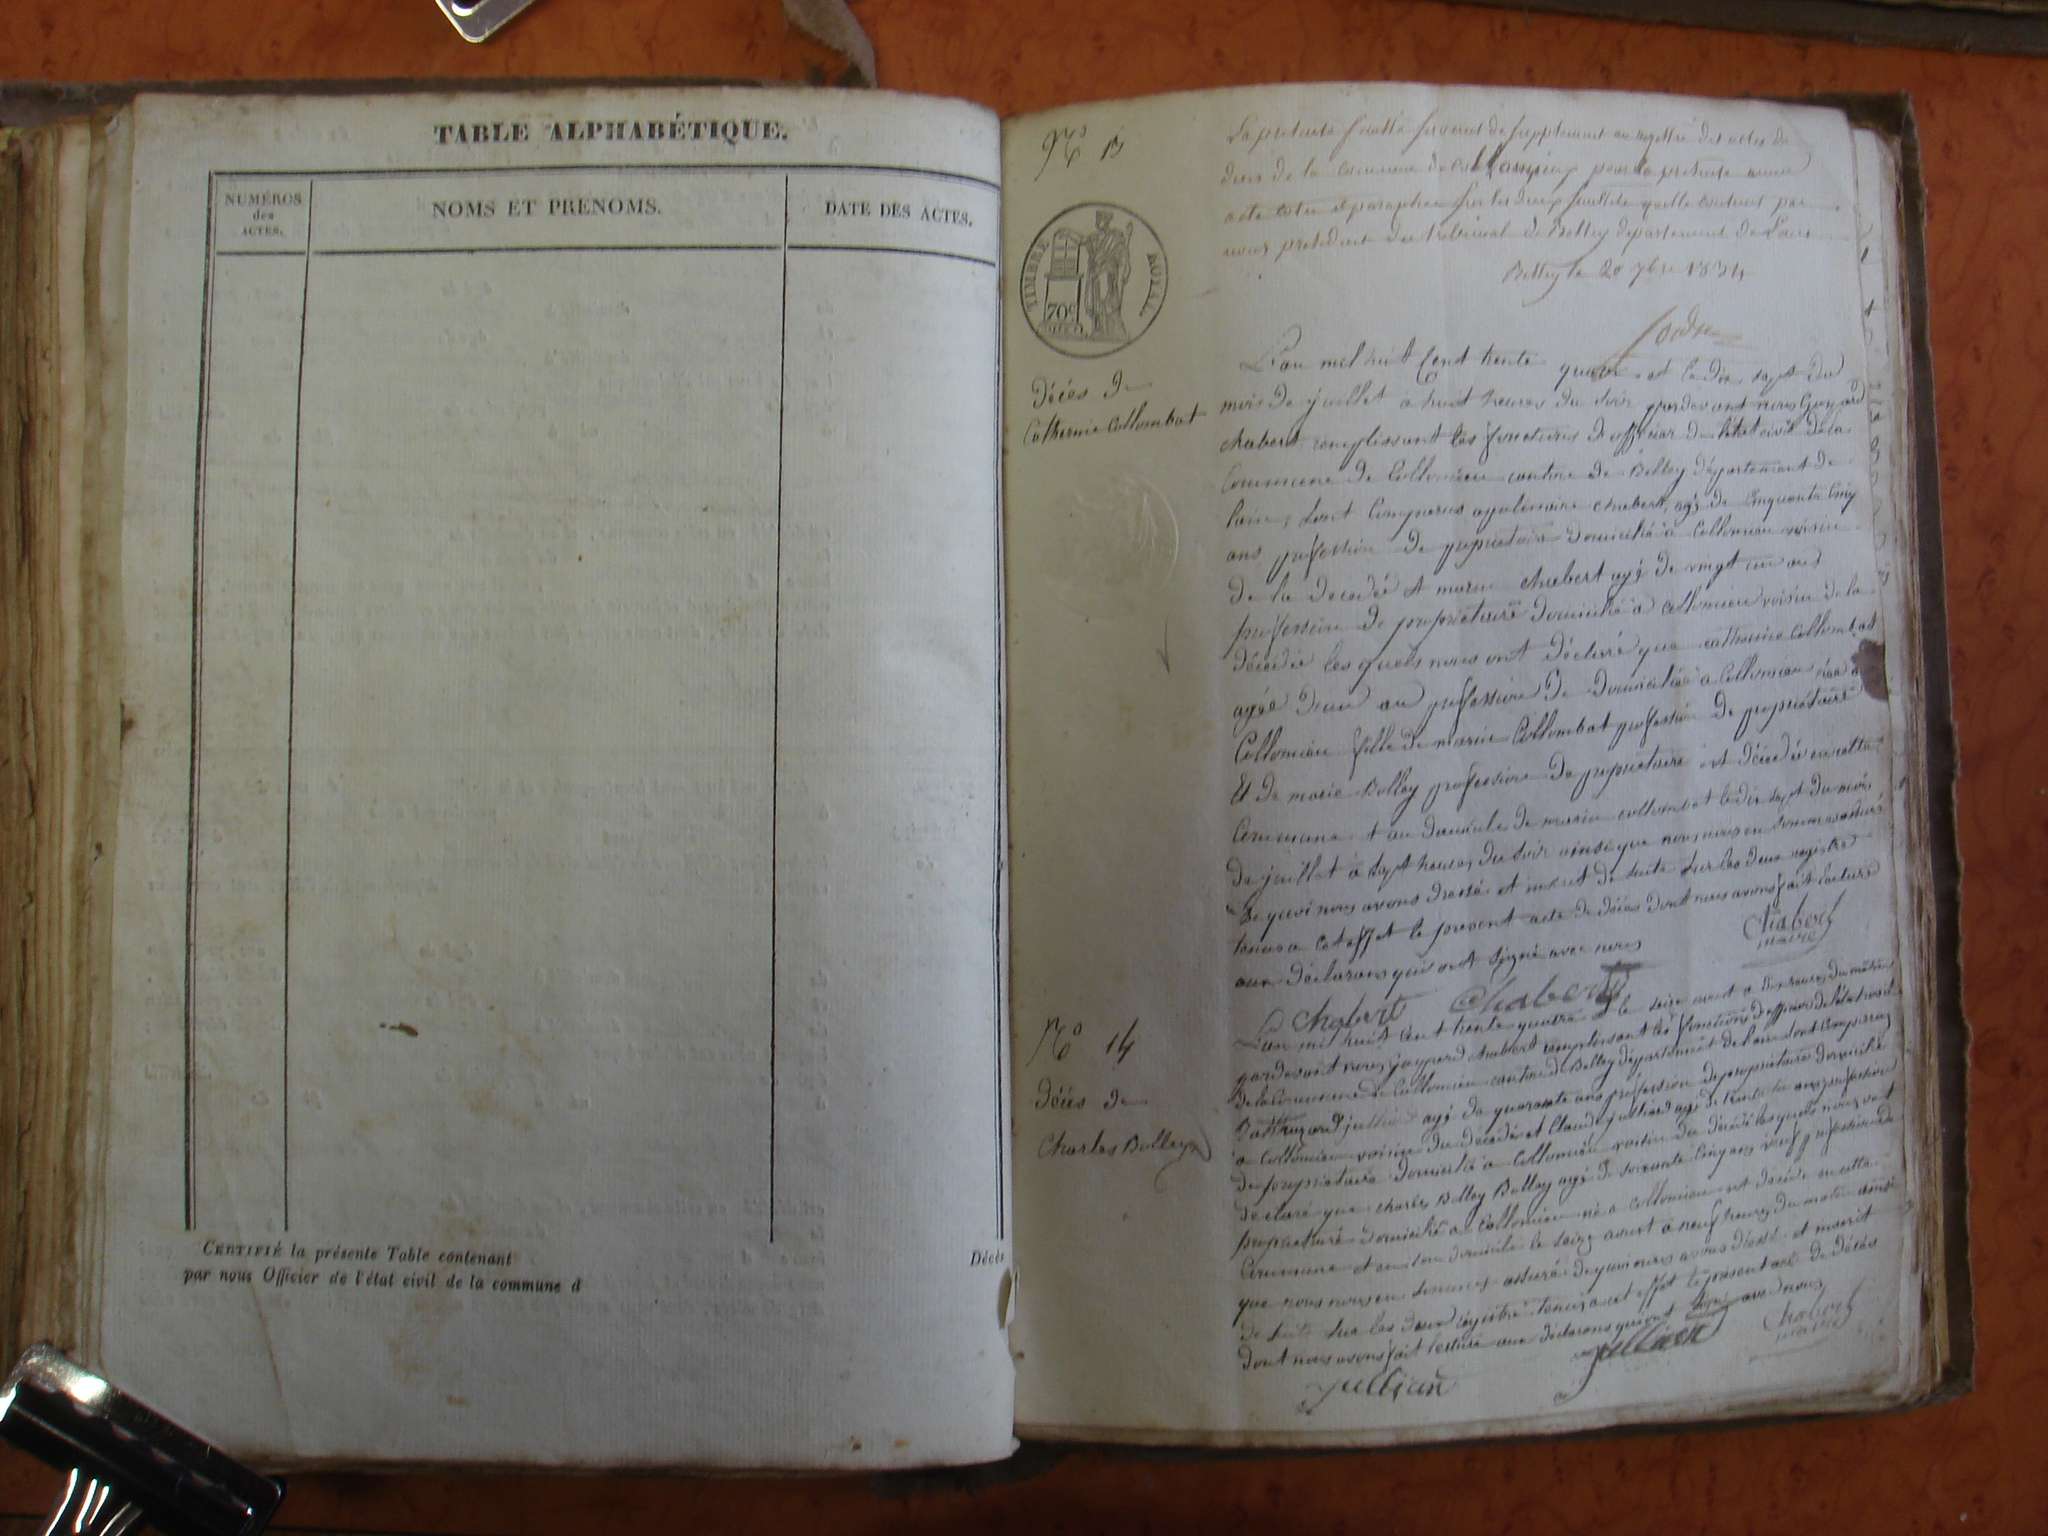 TABLE ALPHABÉTIQUE.
NUMÉROS
des
ACTES.
NOMS ET PRÉNOMS.
DATE DES ACTES.
CERTIFIÉ la présente Table contenant
Décès
par nous Officier de l'état civil de la commune d
No 13
La présente feuille servant de supplément au registre des actes de
décès de la commune de pour la présente année
a été cotée et paraphée sur les deux feuillets qu'elle contient par
nous président du tribunal de Belley département de L'ain
Belley le 20 7bre 1834
TIMBRE ROYAL
70c
Décés de
Catherine Collombat
L'an mil huit Cent trente quatre et le dix sept du
mois de juillet à huit heures du soir pardevant nous
chabert remplissant les fonctions d'officier de l'état civil de la
Commune de Collomieu canton de Belley département de
lain, sont Comparus chabert agé de Cinquante Cinq
ans profession de propriétaire domicilié à Collomieu voisin
de la décédée et marin chabert agé de vingt un ans
profession de propriétaire domicilié à Collomieu voisin de la
décédée les quels nous ont déclaré que catherine Collombat
agée d'un an profession de domiciliée à Collomieu née a
Collomieu fille de marin Collombat profession de propriétaire
Et de marie Belley profession de propriétaire est décédée en cette
Commune et au domicile de marin collombat le dix sept du mois
de juillet à sept heures du soir ainsi que nous nous en sommes assuré
De quoi nous avons dressé et inscrit de suite sur les deux registre
tenus a cet effet le présent acte de décés dont nous avons fait lecture
aux déclarans qui ont signé avec nous
Chabert
maire
Chabert Chabert
No 14
décés de
Charles Belley
L'an mil huit Cent trente quatre et le seize aout a dix heures du matin
pardevant nous jaspard chabert remplissant les fonctions d'officier de l'état civil
de la Commune de Collomieu canton de Belley département de lain sont Comparus
agé de quarante ans profession de propriétaire domicilié
a Collomieu voisin du décédé et Claude agé de ans profession
de propriétaire domicilié a Collomieu voisin du décédé les quels nous ont
déclaré que charles Belley agé de soixante Cinq ans veuf profession de
propriétaire domicilié a Collomieu né a Collomieu est décédé en cette
Commune et en son domicile le seize aout à neuf heures du matin ainsi
que nous nous en sommes assuré de quoi nous avons dressé et inscrit
de suite sur les deux registre tenus a cet effet le présent acte de décés
dont nous avons fait lecture aux déclarans qui ont signé avec nous
Chabert
maire